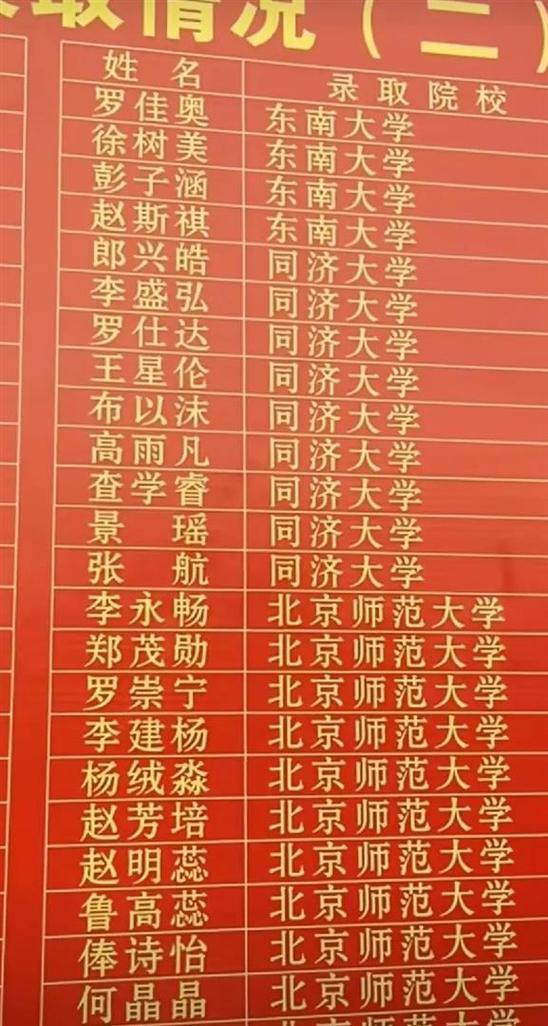 录取情况（二）
姓名 录取院校
罗佳奥 东南大学
徐树美 东南大学
彭子涵 东南大学
赵斯祺 东南大学
郎兴皓 同济大学
李盛弘 同济大学
罗仕达 同济大学
王星伦 同济大学
布以沫 同济大学
高雨凡 同济大学
查学睿 同济大学
景瑶 同济大学
张航 同济大学
李永畅 北京师范大学
郑茂勋 北京师范大学
罗崇宁 北京师范大学
李建杨 北京师范大学
杨绒淼 北京师范大学
赵芳培 北京师范大学
赵明蕊 北京师范大学
鲁高蕊 北京师范大学
俸诗怡 北京师范大学
何晶晶 北京师范大学